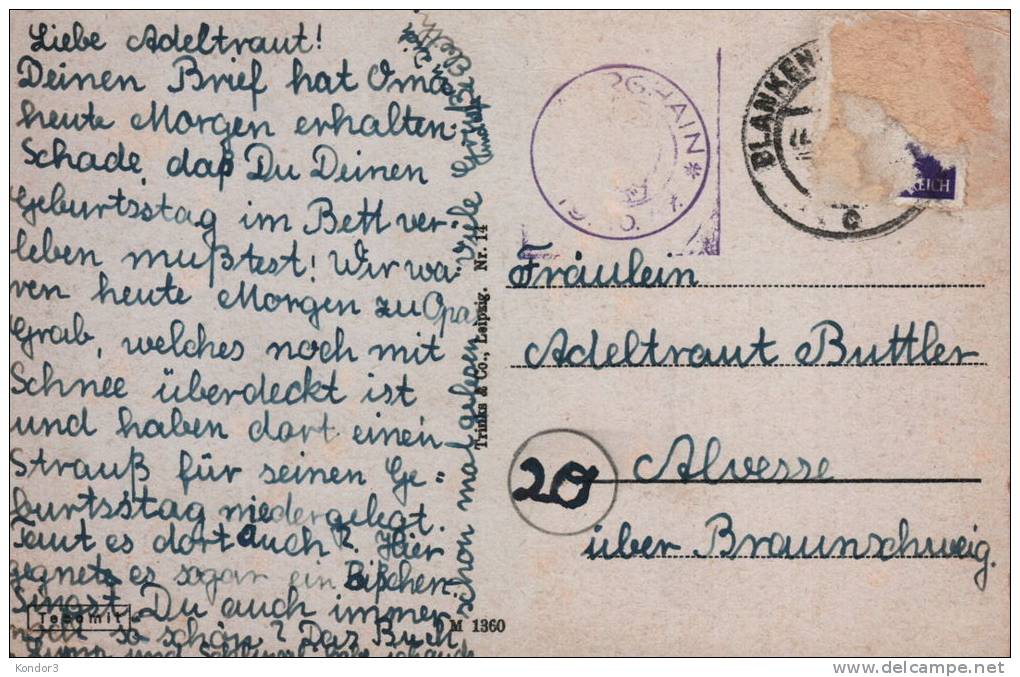 Liebe Adeltraut!
Deinen Brief hat Oma
heute Morgen erhalten.
Schade, daß Du Deinen
Geburtsstag im Bett ver-
leben mußtest! Wir wa-
ren heute Morgen zu Opas
Grab, welches noch mit
Schnee überdeckt ist
und haben dort einen
Strauß für seinen Ge=
burtsstag niedergelegt.
Taut es dort auch? Hier
regnete es sogar ein Bißchen.
Singst Du auch immer
noch so schön? Das Buch
und
schon mal gelesen
Viele Grüße
Tebomit
M 1360
Trinks & Co., Leipzig. Nr. 14
RGHAIN *
BLANKEN
c
REICH
Fräulein
Adeltraut Buttler
20
Alvesse
über Braunschweig.
Kondor3
www.delcampe.net